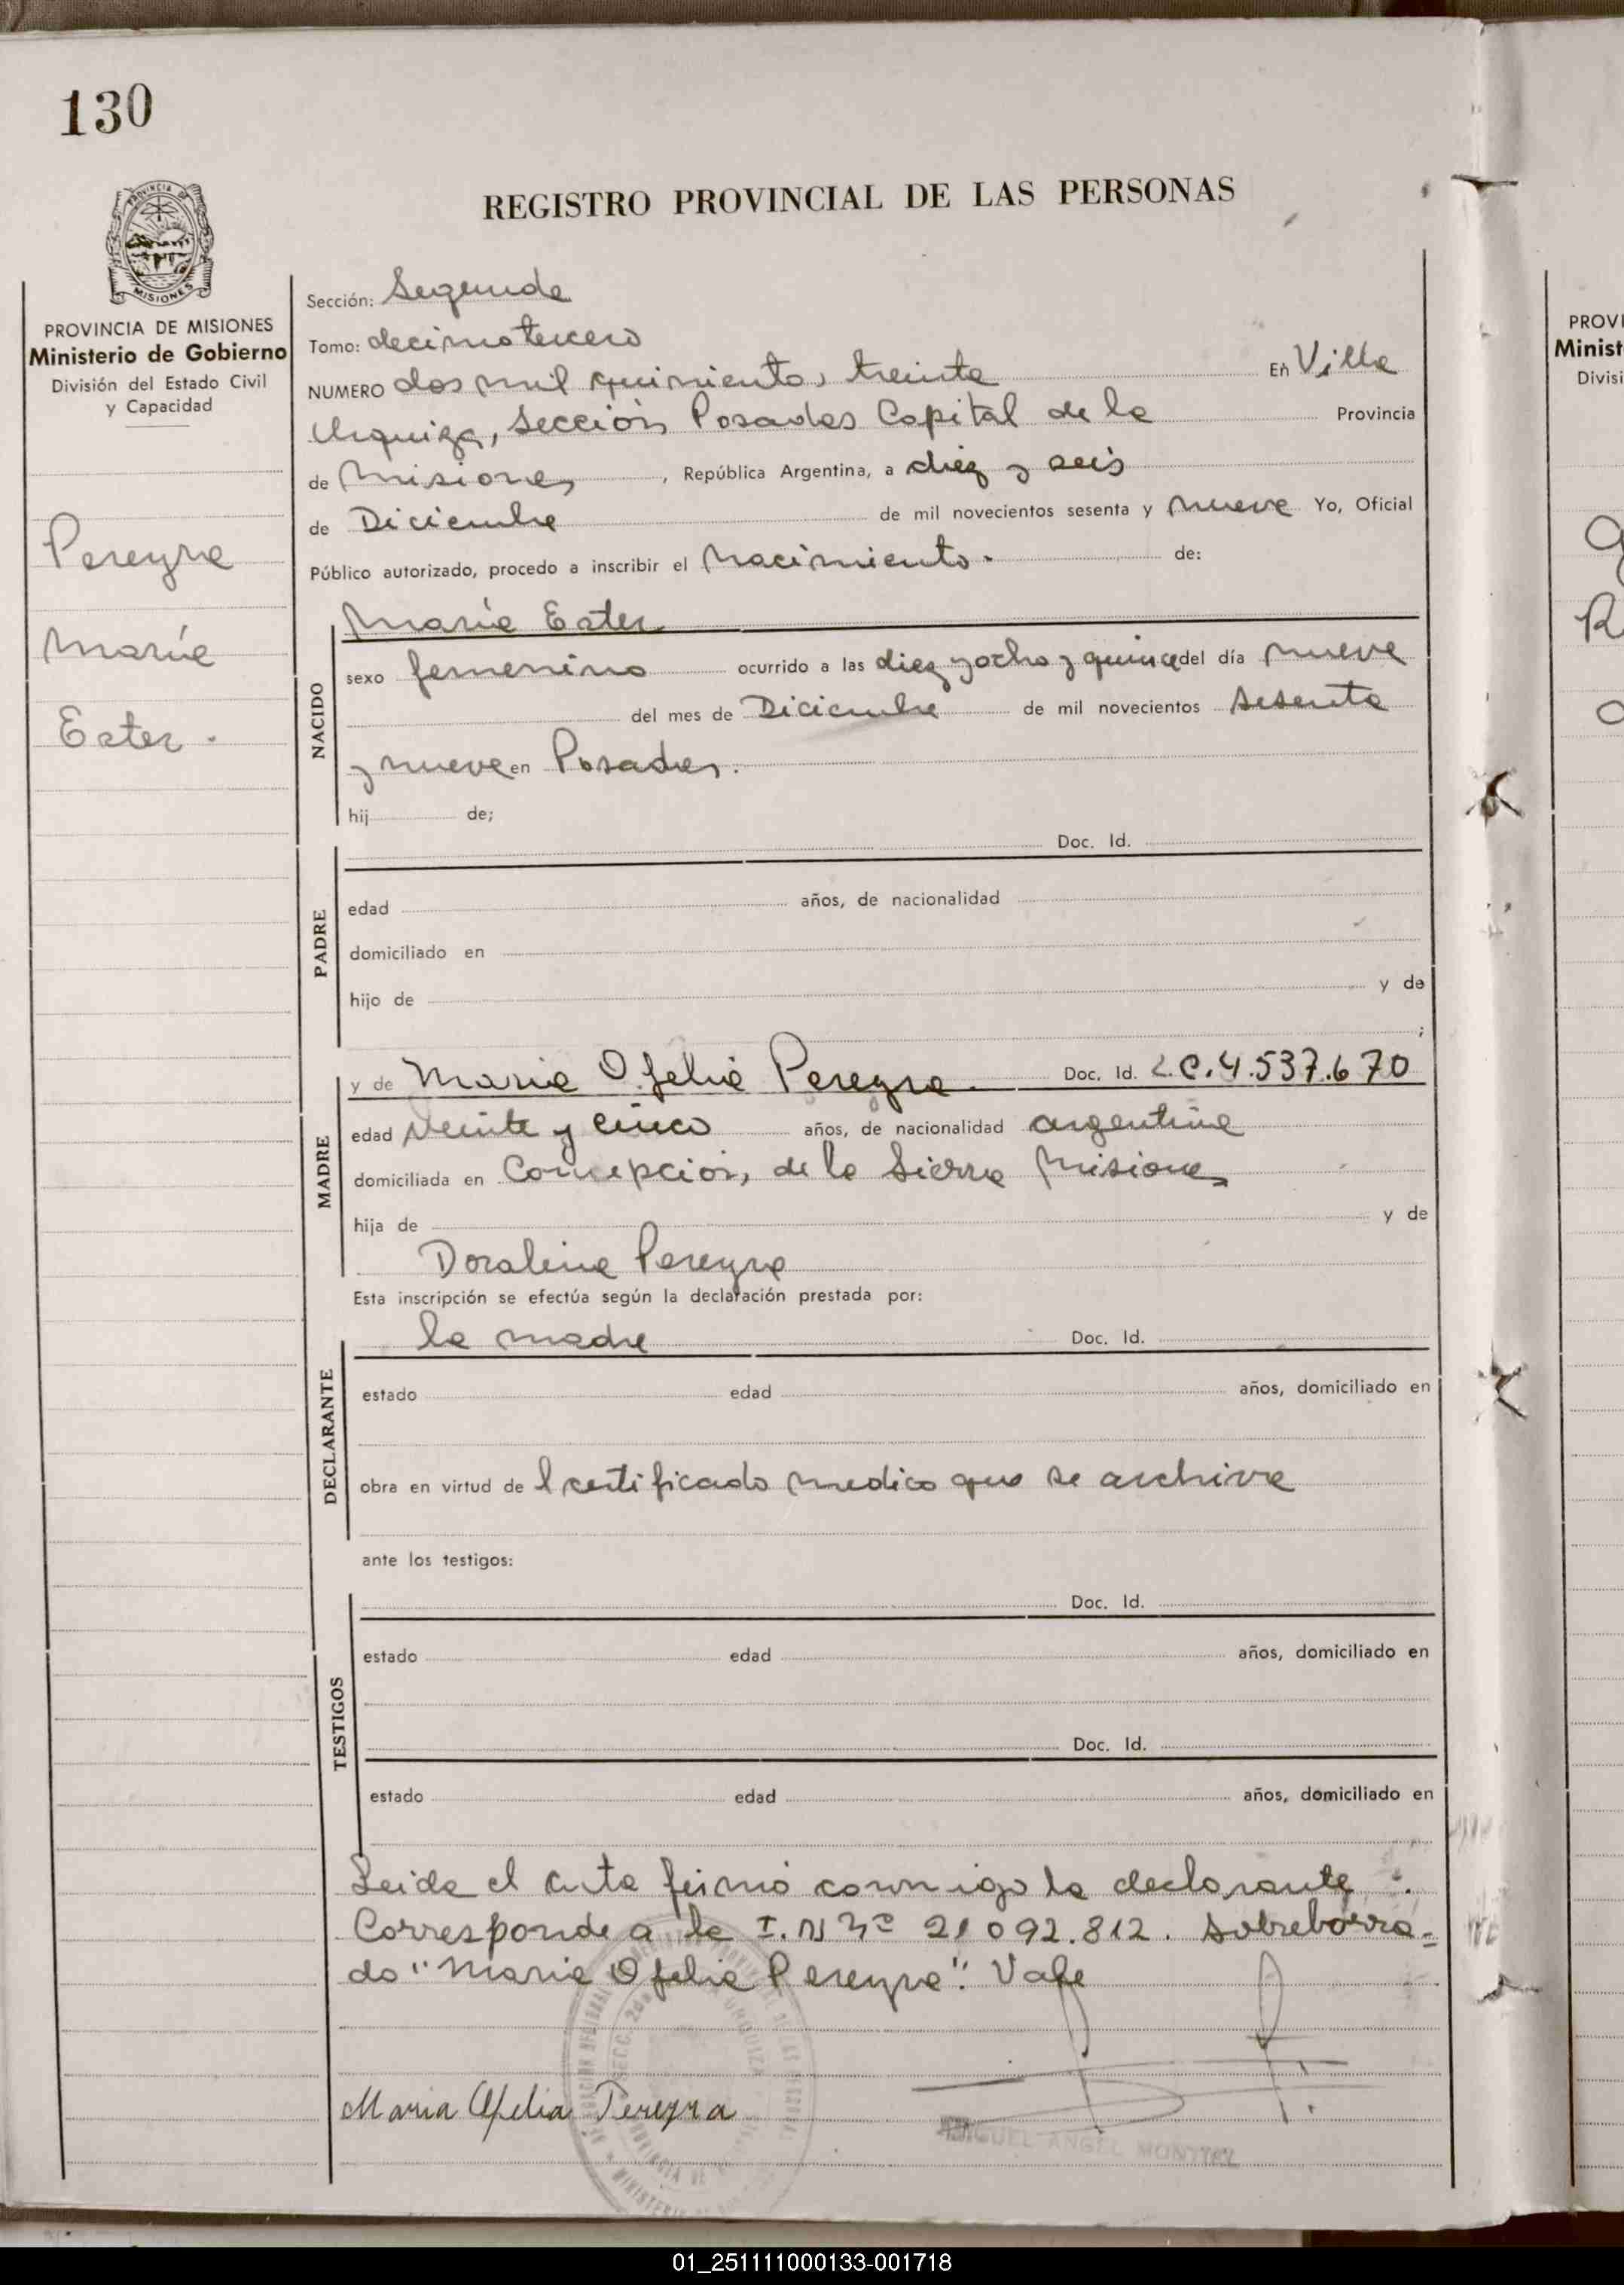 130
PROVINCIA DE MISIONES
REGISTRO PROVINCIAL DE LAS PERSONAS
PROVINCIA DE MISIONES
Ministerio de Gobierno
División del Estado Civil
y Capacidad
Pereyra
María
Ester.
Sección: Segunda
Tomo: decimo tercero
NUMERO dos mil quinientos treinta En Villa
Urquiza, Sección Posadas Capital de la Provincia
de Misiones, República Argentina, a diez y seis
de Diciembre de mil novecientos sesenta y nueve Yo, Oficial
Público autorizado, procedo a inscribir el Nacimiento. de:
NACIDO
María Ester
sexo femenino ocurrido a las diez y ocho y quince del día nueve
del mes de Diciembre de mil novecientos sesenta
y nueve en Posadas.
hij de;
PADRE
Doc. Id.
edad años, de nacionalidad
domiciliado en
hijo de y de
;
MADRE
y de Maria Ofelia Pereyra Doc. Id. L.C.4.537.670
edad veinte y cinco años, de nacionalidad argentina
domiciliada en Concepción, de la Sierra Misiones
hija de y de
Doralina Pereyra
Esta inscripción se efectúa según la declaración prestada por:
DECLARANTE
la madre Doc. Id.
estado edad años, domiciliado en
obra en virtud de l certificado medico que se archiva
ante los testigos:
TESTIGOS
Doc. Id.
estado edad años, domiciliado en
Doc. Id.
estado edad años, domiciliado en
Leida el acta firmó conmigo la declarante.
Corresponde a la I.N Nº 21 092.812. Sobreborra=
do "Maria Ofelia Pereyra". Vale
Maria Ofelia Pereyra
MIGUEL ANGEL
PROVI
Minist
Divisi
01_251111000133-001718